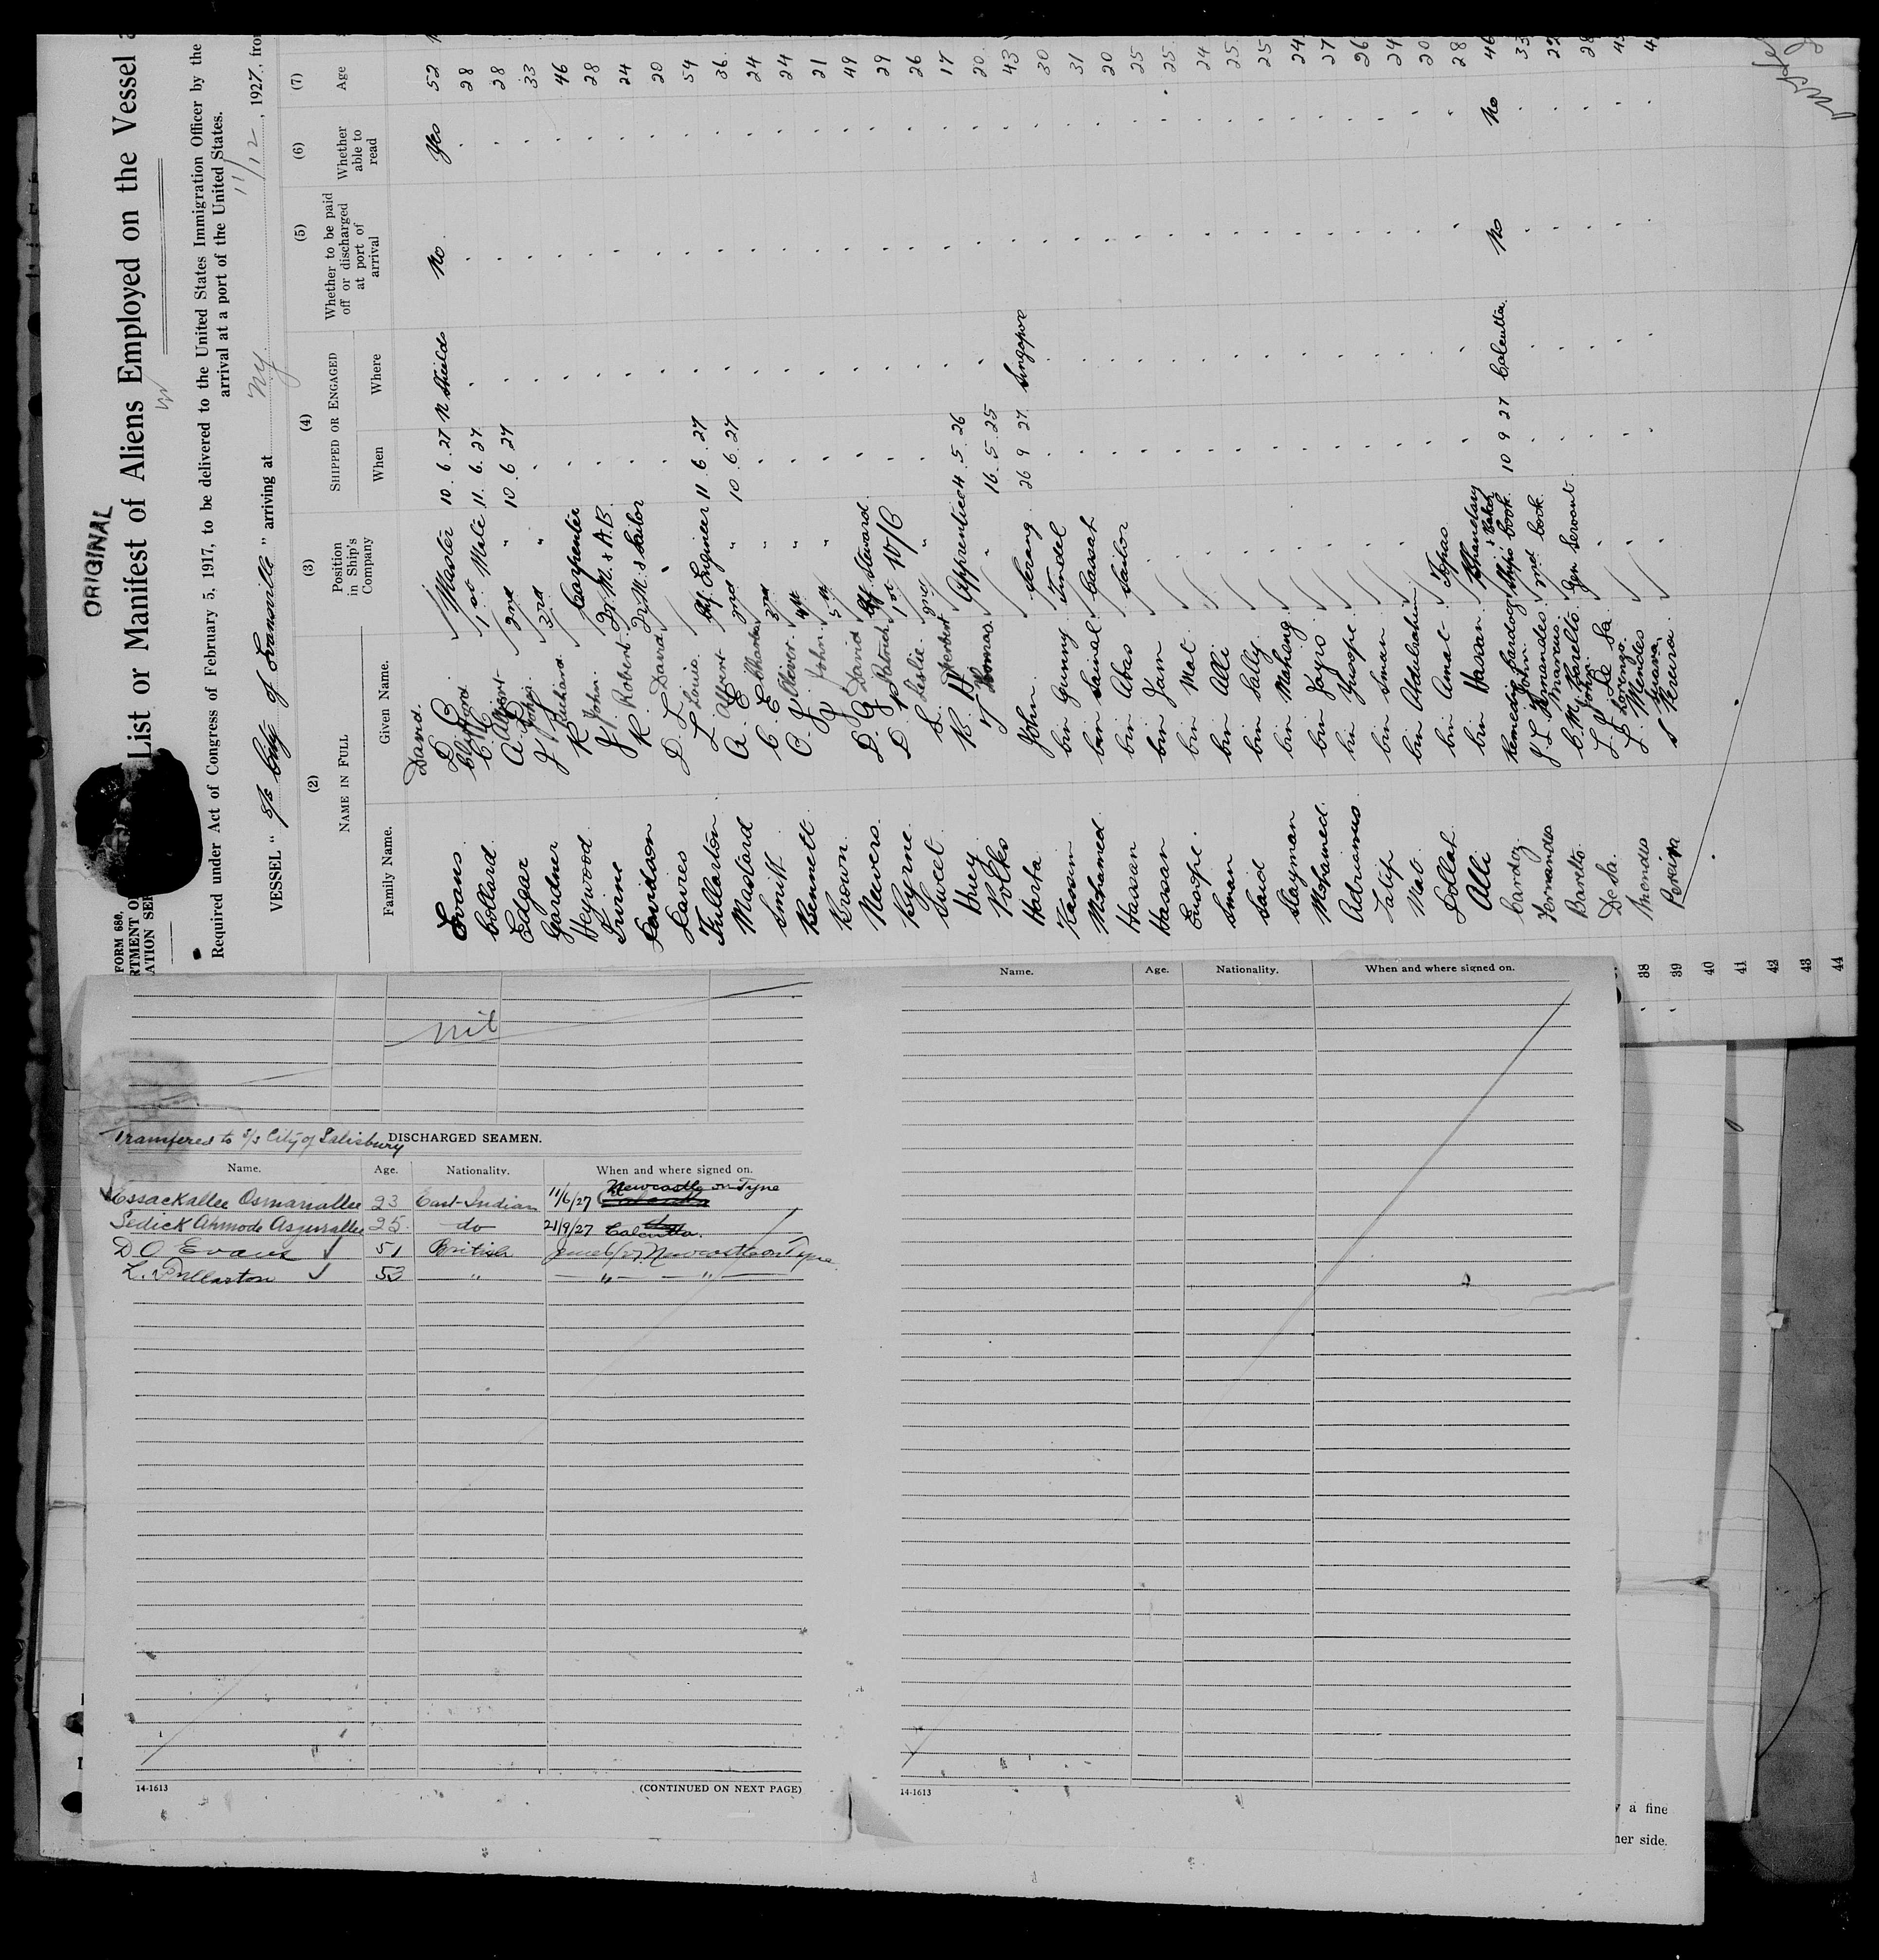 ORIGINAL
FORM 680,
List or Manifest of Aliens Employed on the Vessel
Required under Act of Congress of February 5, 1917, to be delivered to the United States Immigration Officer by the
arrival at a port of the United States.
VESSEL " s/s City of Evansville " arriving at NY 11/12, 1927, from
(2) (3) (4) (5) (6) (7)
NAME IN FULL
Family Name. Given Name.
Position in Ship's Company
SHIPPED OR ENGAGED
When Where
Whether to be paid off or discharged at port of arrival
Whether able to read
Age
David
Evans D. O. Master 10 . 6 . 27 N Shields No Yes 52
Collard 1st Mate 11 . 6 . 27 28
Edgar Albert 2nd " 10 6 27 28
Gardner 3rd " 33
Heywood Richard Carpenter 46
Irvine John 28
Davidson Robert Sailor 24
Davies David 20
Fullarton Louis Engineer 11 6 . 27 54
Mastard Albert 2nd " 10 . 6 . 27 36
Smith 3rd " 24
Bennett Oliver 4th " 24
Brown John 5th " 21
Nevers David Steward 49
Byrne Patrick 1st W/O 29
Sweet Leslie 2nd " 26
Huey Herbert Apprentice 4 . 5 . 26 17
Folks Thomas " 16 . 5 . 25 20
Harta John Serang 26 9 27 Singapore 43
Kassim bin Gunny Tindel 30
Mohamed bin Sainal Cassab 31
Hassan bin Abas Sailor 20
Hassan bin Jam 25
Esoofe bin Mat 25
Sman bin Alli 24
Said bin Sally 25
Slayman bin Mahang 25
Mohamed bin Fayro 24
Adrianus bin Yusope 27
Latip bin Sman 26
Mat bin Abdulrahim 24
Dollah bin Amat Topas 20
Alli bin Hasan Bhandary 28
Cardoz Ship's Cook 10 9 27 Calcutta No No 46
Fernandes John 2nd Cook 33
Baretto C. M. Baretto Gen Servant 22
De Sa L. J. De Sa 28
38 Mendes L. Mendes
39 Pereira S Pereira
40
41
42
43
44
nil
Transfered to s/s City of Salisbury
DISCHARGED SEAMEN.
Name. Age. Nationality. When and where signed on.
Essackallee Osmanallee 23 East Indian 11/6/27 Newcastle on Tyne
Sedick Ahmode Asgurallee 25 do 21/9/27 Calcutta.
D O Evans 51 British June 6/27 Newcastle on Tyne
L. Fullarton 53 " " "
14-1613 (CONTINUED ON NEXT PAGE)
Name. Age. Nationality. When and where signed on.
14-1613
a fine
her side.